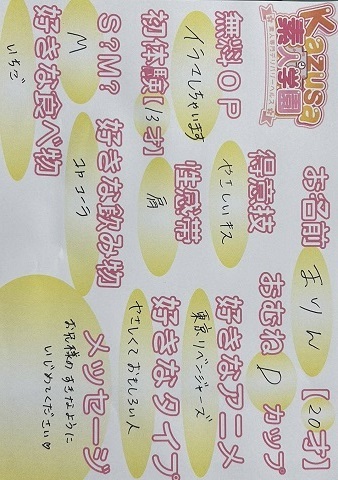 Kazusa
素人学園
お名前 まりん【20才】
おむね D カップ
無料OP イラマしちゃいます
得意技 やさしいキス
好きなアニメ 東京リベンジャーズ
初体験【才】
性感帯 肩
好きなタイプ やさしくておもしろい人
S?M? M
好きな飲み物 コカコーラ
好きな食べ物 いちご
メッセージ
お兄様のすきなように
いじめてください♡